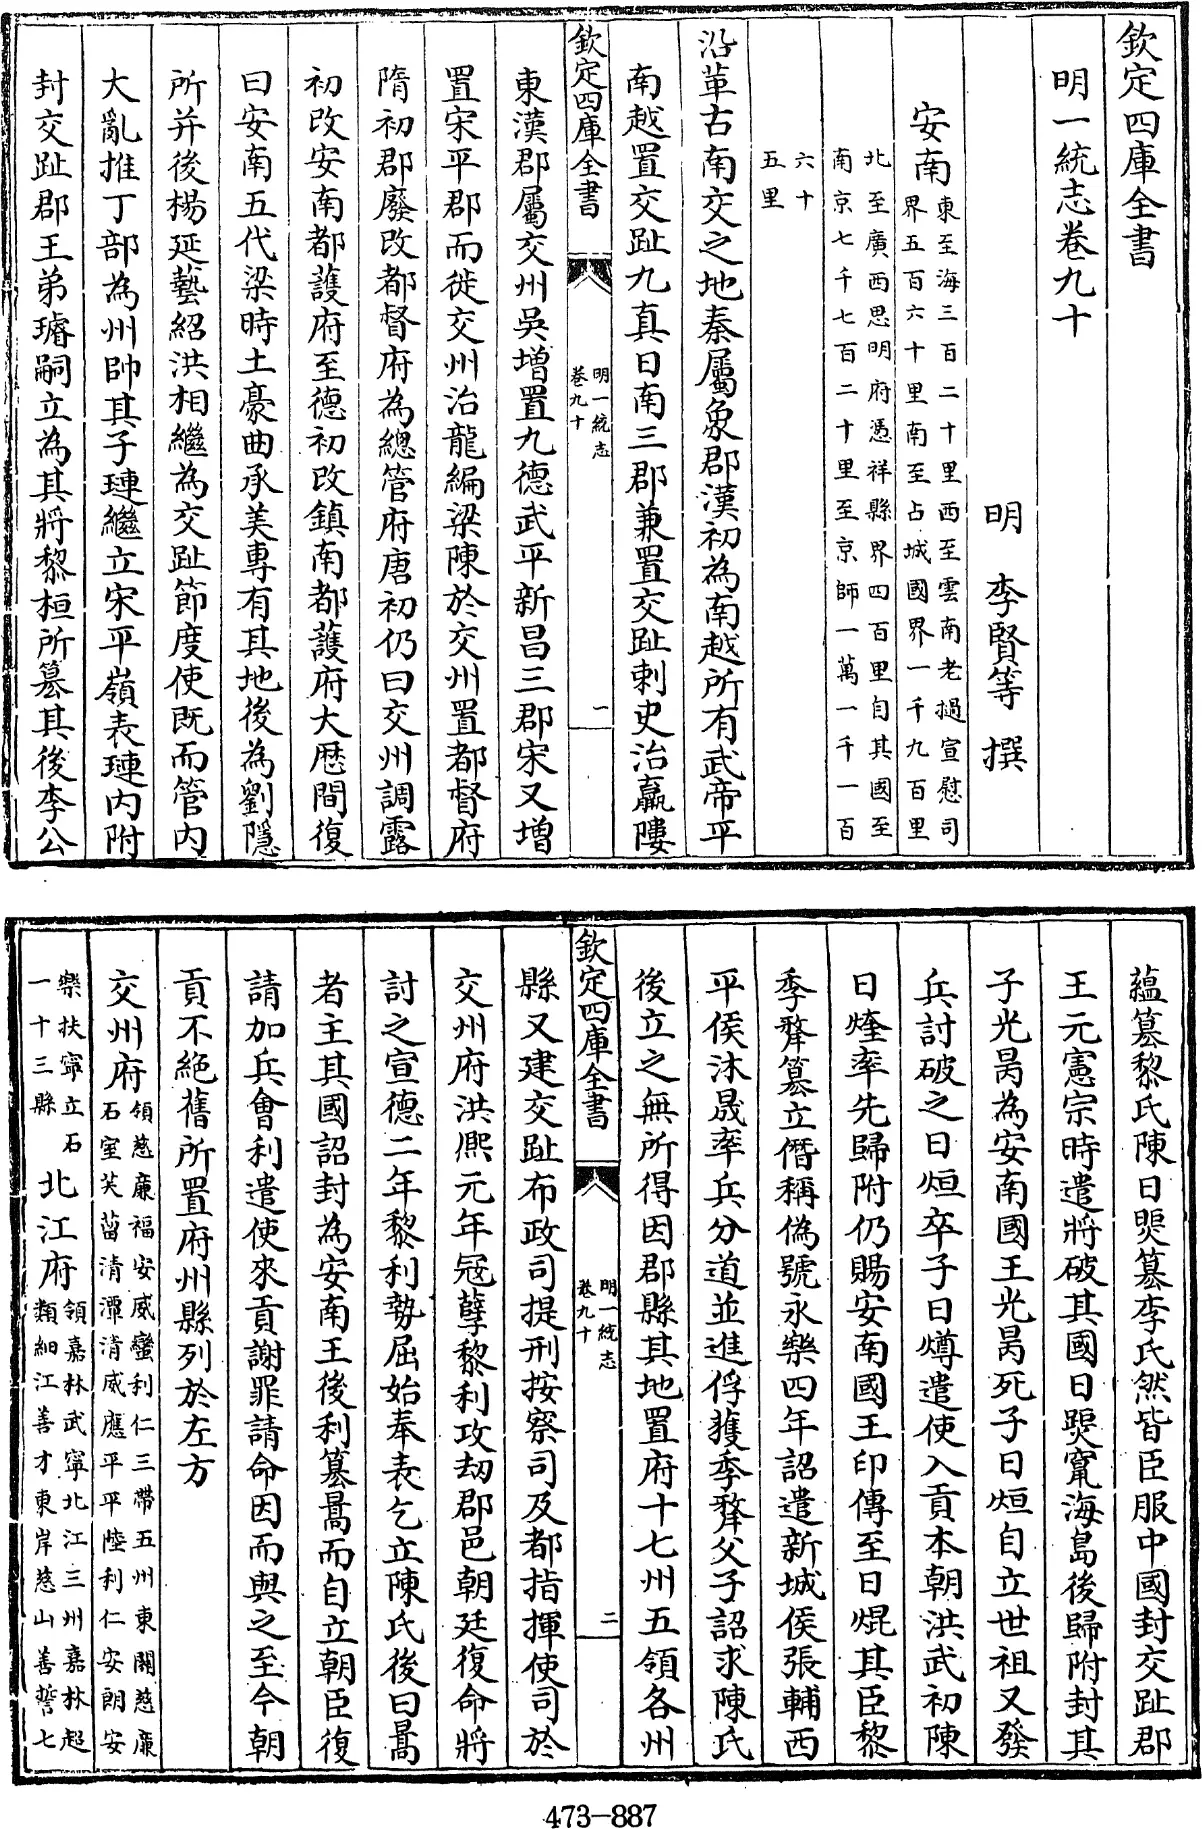 欽定四庫全書
明一統志卷九十
明 李賢等 撰
安南
東至海三百二十里西至雲南老撾宣慰司
界五百六十里南至占城國界一千九百里
北至廣西思明府憑祥縣界四百里自其國至
南京七千七百二十里至京師一萬一千一百
六十
五里
沿革古南交之地秦屬象郡漢初為南越所有武帝平
南越置交趾九真日南三郡兼置交趾刺史治羸𨻻
欽定四庫全書
明一統志
卷九十
一
東漢郡屬交州吳增置九德武平新昌三郡宋又增
置宋平郡而徙交州治龍編梁陳於交州置都督府
隋初郡廢改都督府為總管府唐初仍曰交州調露
初改安南都護府至德初改鎮南都護府大厯間復
曰安南五代梁時土豪曲承美專有其地後為劉隱
所并後楊延藝紹洪相繼為交趾節度使既而管內
大亂推丁部為州帥其子璉繼立宋平嶺表璉內附
封交趾郡王弟璿嗣立為其將黎桓所簒其後李公
蘊簒黎氏陳日煚簒李氏然皆臣服中國封交趾郡
王元憲宗時遣將破其國日煚竄海島後歸附封其
子光昺為安南國王光昺死子日烜自立世祖又發
兵討破之日烜卒子日燇遣使入貢本朝洪武初陳
日煃率先歸附仍賜安南國王印傳至日焜其臣黎
季犛簒立僭稱偽號永樂四年詔遣新城侯張輔西
平侯沐晟率兵分道並進俘獲季犛父子詔求陳氏
後立之無所得因郡縣其地置府十七州五領各州
欽定四庫全書
明一統志
卷九十
二
縣又建交趾布政司提刑按察司及都指揮使司於
交州府洪熈元年冦孽黎利攻劫郡邑朝廷復命將
討之宣德二年黎利勢屈始奉表乞立陳氏後曰暠
者主其國詔封為安南王後利簒暠而自立朝臣復
請加兵會利遣使來貢謝罪請命因而與之至今朝
貢不絕舊所置府州縣列於左方
交州府
領慈廉福安威蠻利仁三帶五州東關慈廉
石室芙㽞清潭清威應平平陸利仁安朗安
樂扶寧立石
一十三縣
北江府
領嘉林武寧北江三州嘉林超
類細江善才東岸慈山善誓七
473-887